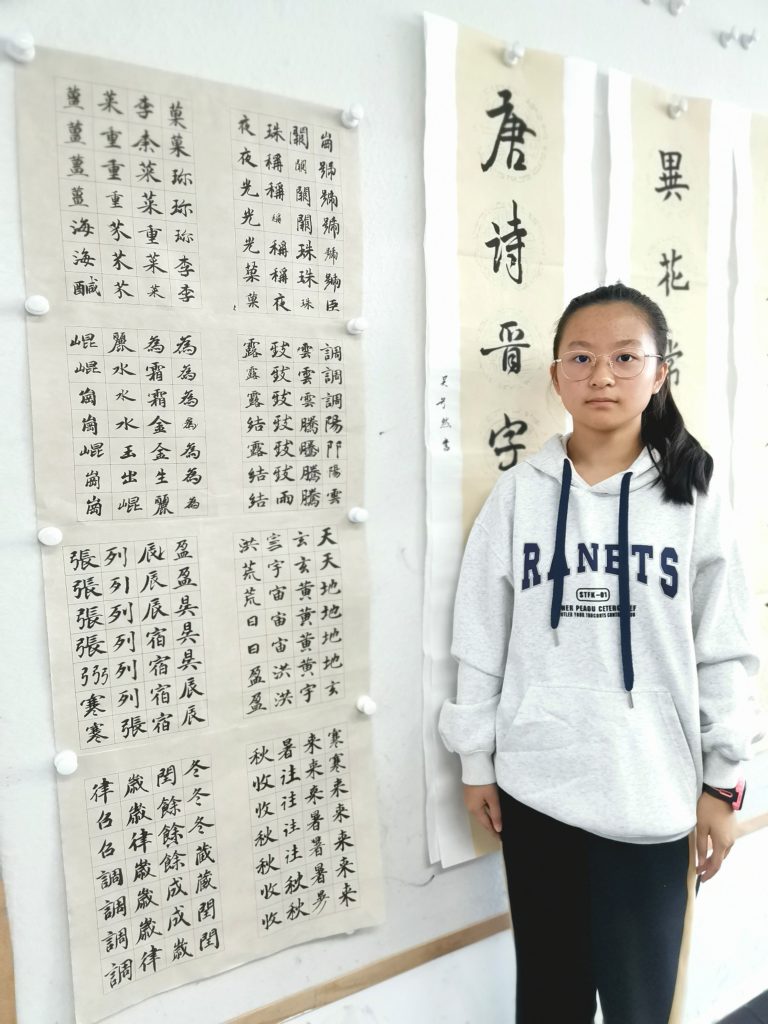 崗號號號號號臣
闕闕闕闕珠珠珠
珠稱稱稱稱稱夜
夜夜光光光菓菓
菓菓珎珎珎李李
李柰菜菜重菜菜
菜重重重芥芥芥
薑薑薑薑海海鹹
調調調陽陽雲
雲雲雲騰騰騰騰
致致致致致致雨
露露露結露結結
為為為為為為為
為霜霜金金生麗
麗水水水玉出崐
崐崐崗崗崐崗崗
天天地地地地玄
玄玄黄黄黄黄宇
宇宙宙宙洪洪
洪荒荒日日盈盈
盈盈昃昃昃辰辰
辰辰辰宿宿宿宿
列列列列列列張
張張張張寒寒
寒寒来来来来来
来来来暑暑暑
暑往往往往秋秋
秋收收秋秋收收
冬冬冬蔵蔵閏閏
閏餘餘餘成成歳
歳歳律歳歳歳律
律吕吕調調調調
唐诗晋字
異花常
RANETS
STFK-01